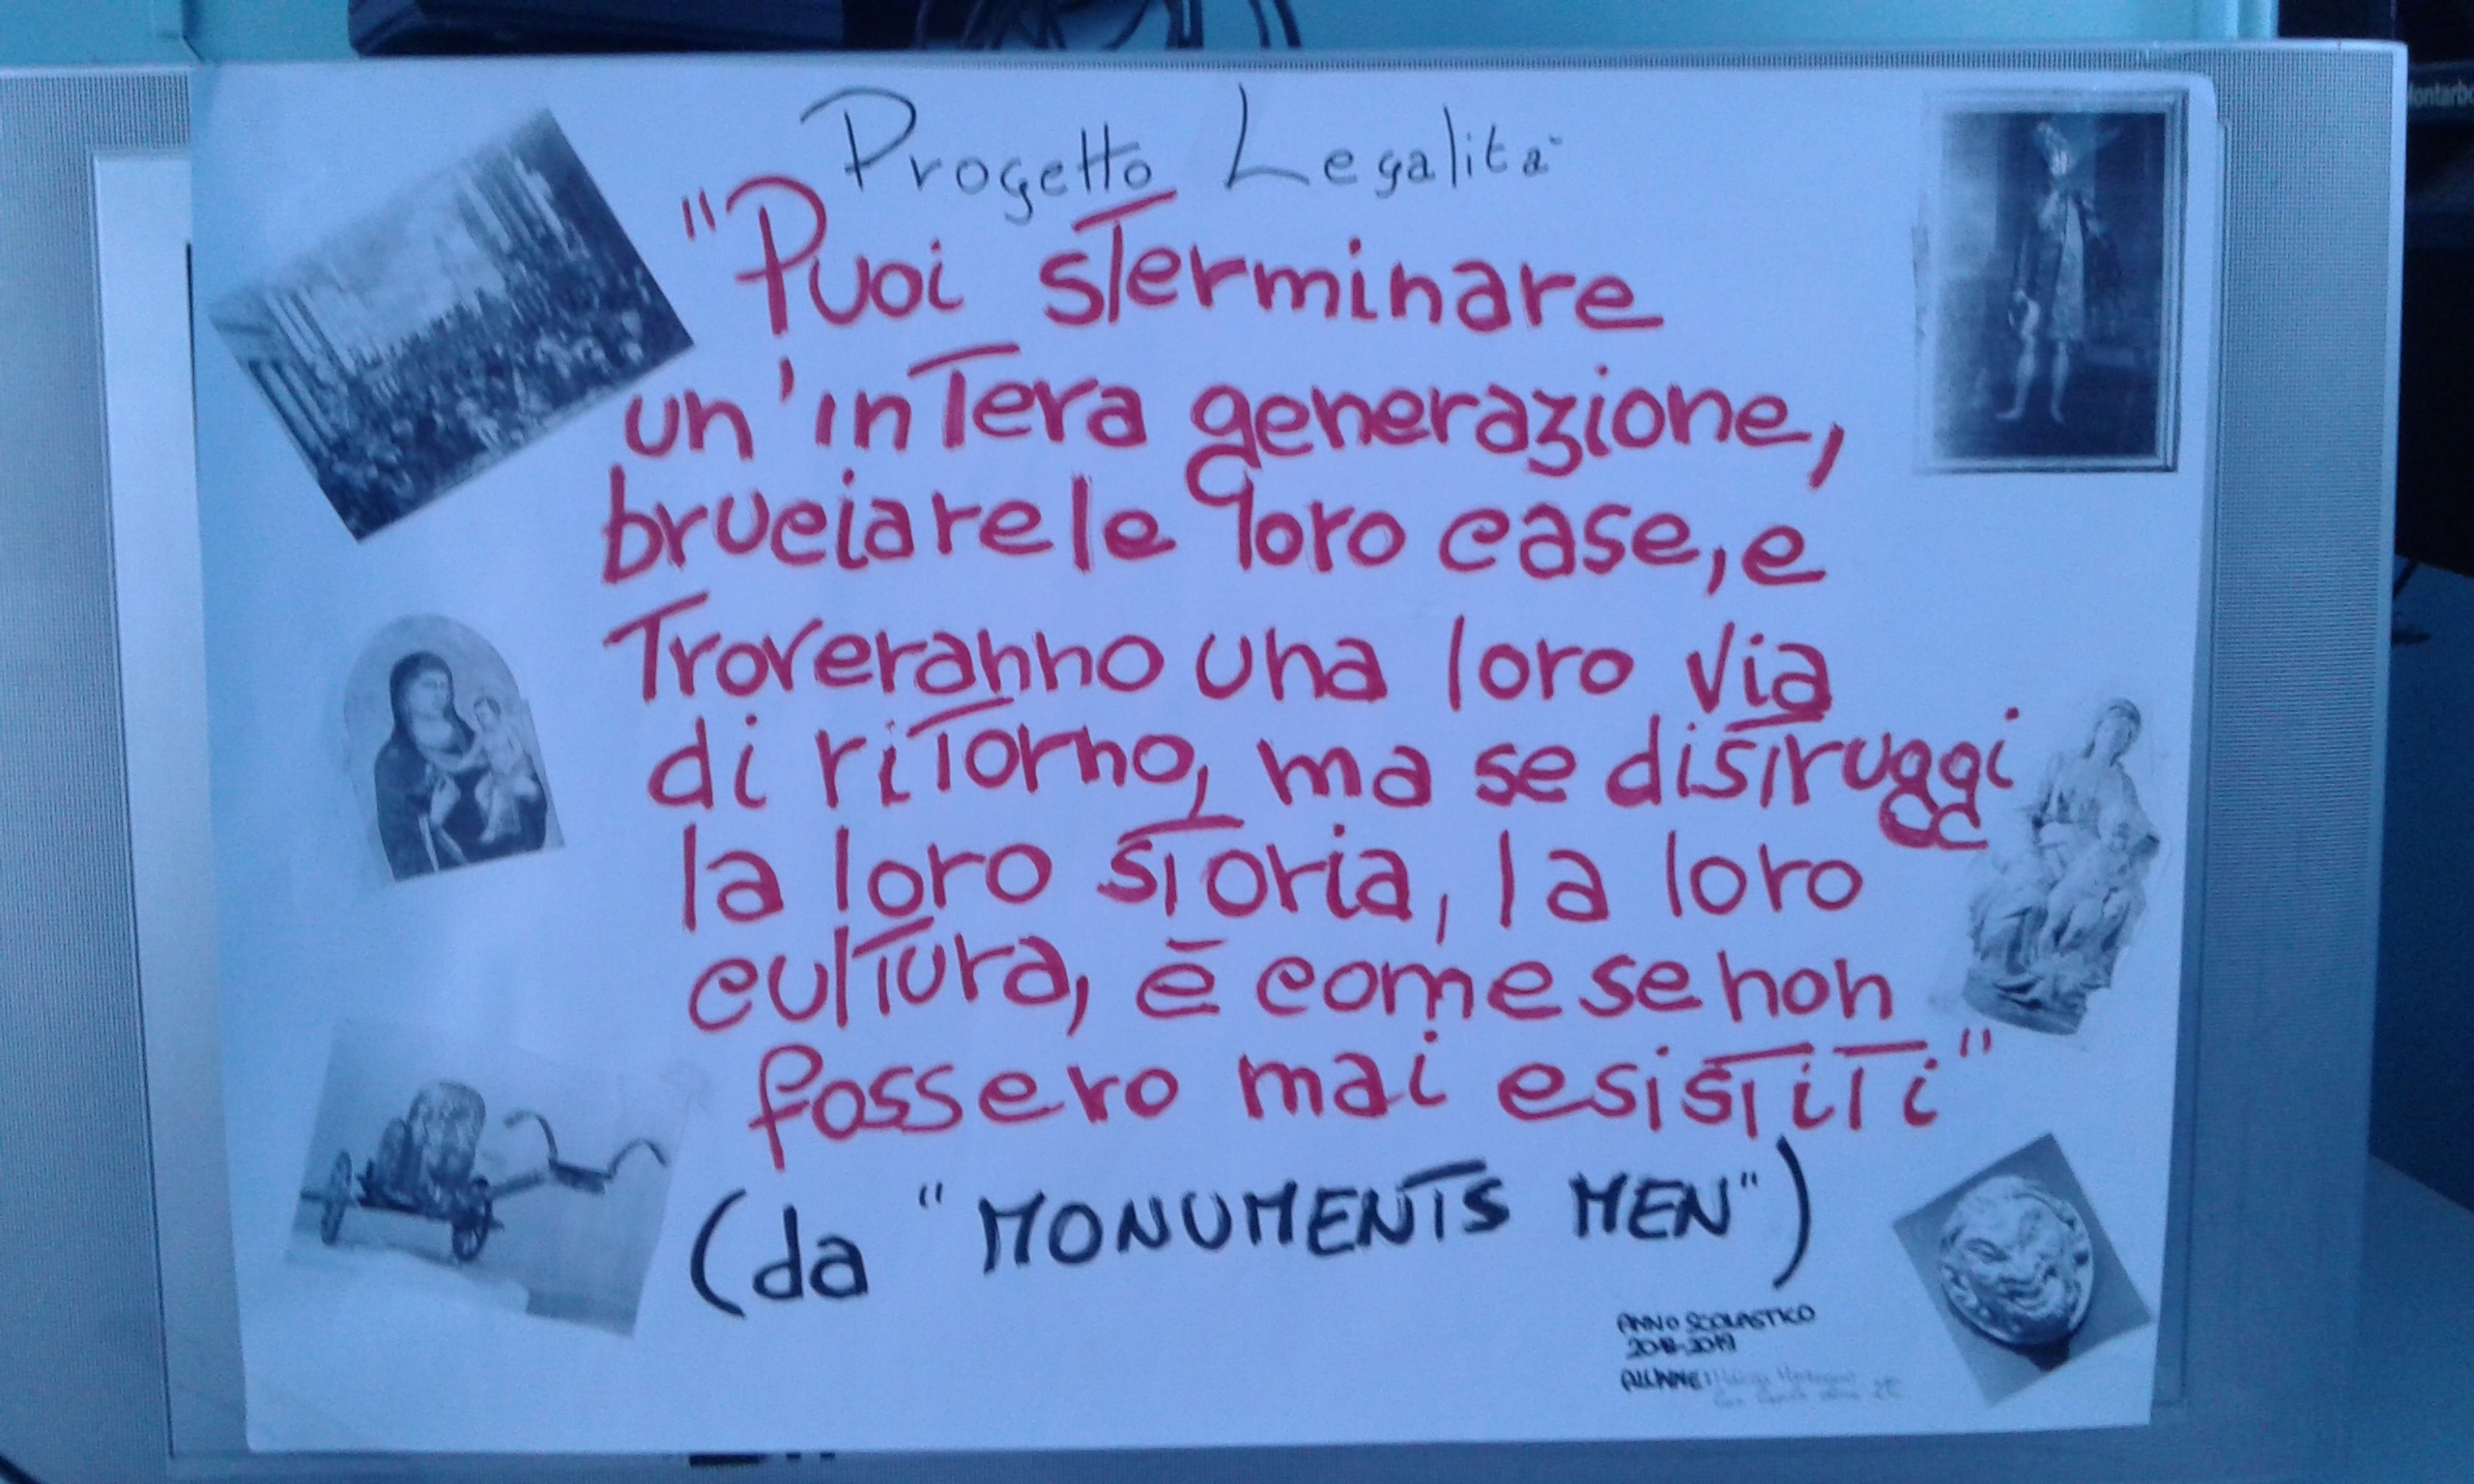 Progetto Legalità
"Puoi sterminare
un'intera generazione,
bruciare le loro case, e
troveranno una loro via
di ritorno, ma se distruggi
la loro storia, la loro
cultura, è come se non
fossero mai esistiti"
(da "MONUMENTS MEN")
ANNO SCOLASTICO
2018-2019
ALUNNE: